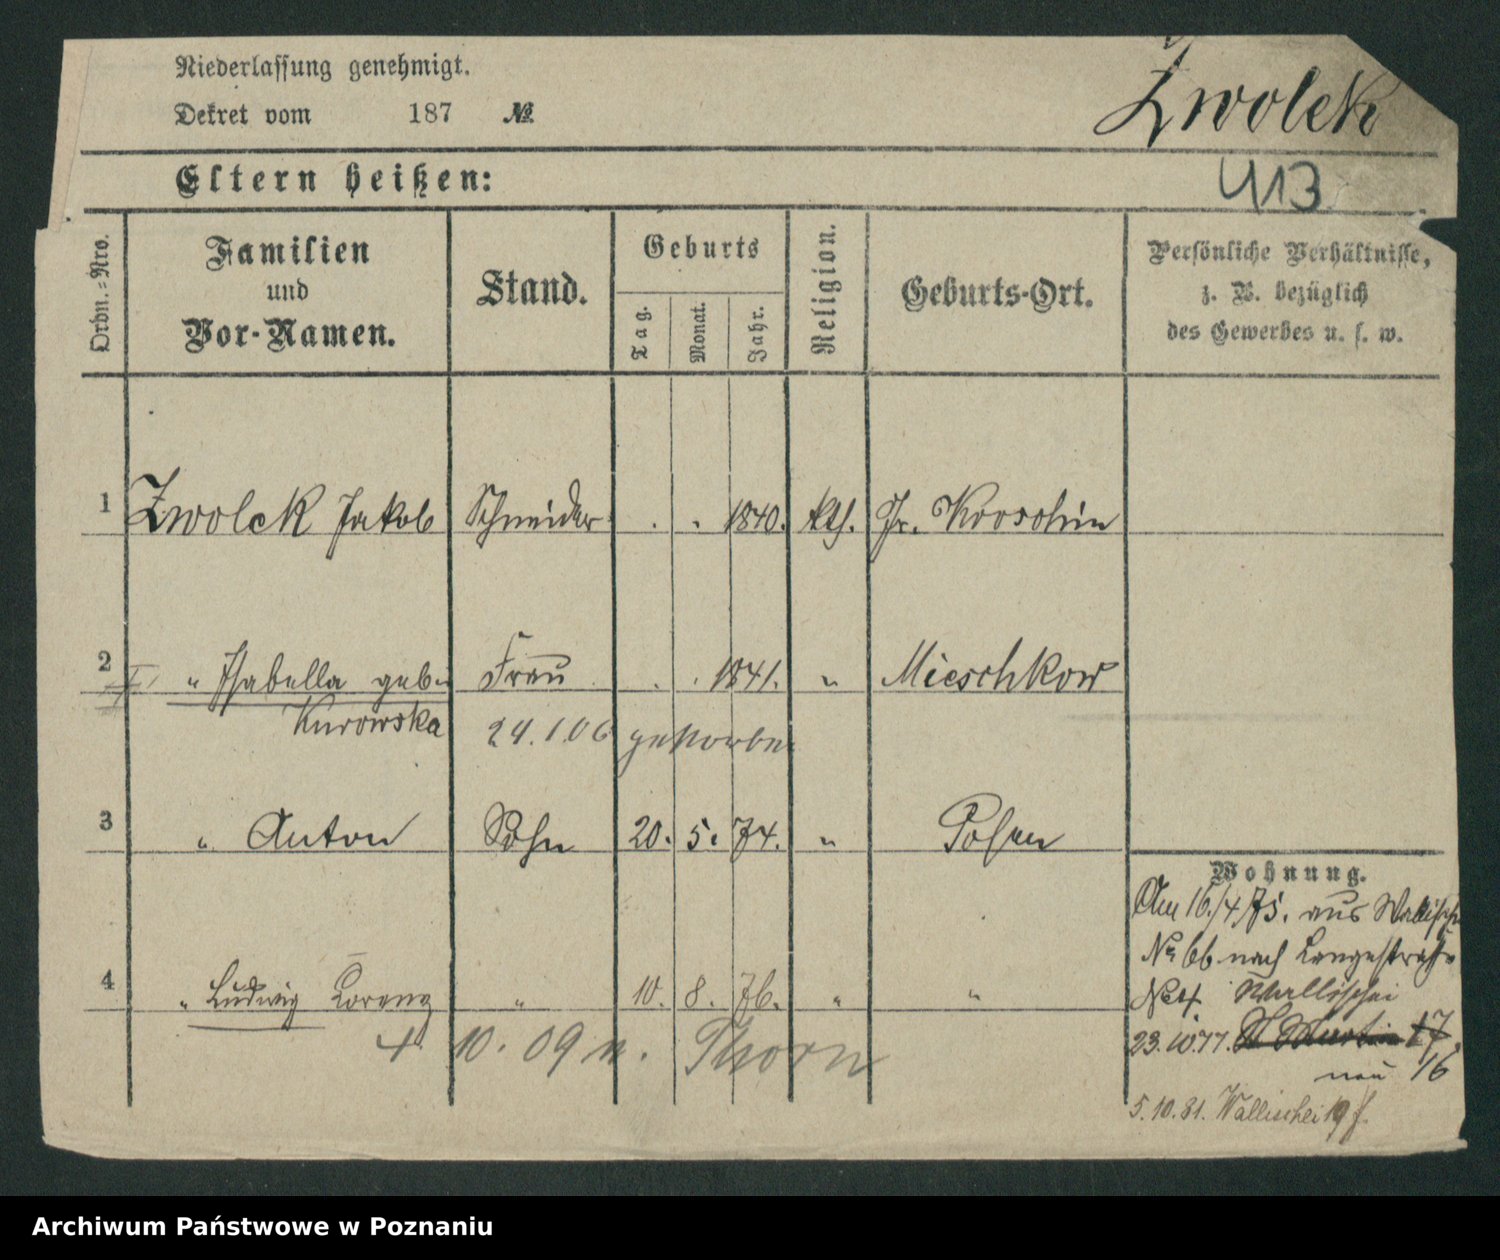 Niederlassung genehmigt.
Dekret vom 187 №
Zwolek
Eltern heißen:
413
Ordn.=Nro.
Familien
und
Vor-Namen.
Stand.
Geburts
Tag.
Monat.
Jahr.
Religion.
Geburts-Ort.
Persönliche Verhältnisse,
z. B. bezüglich
des Gewerbes u. s. w.
1 Zwolek Jakob Schneider . . 1840. kth. Gr. Kroschin
2 " Isabella geb. Frau . . 1841. " Mieschkow
Kurowska 24.1.06 gestorben
3 " Anton Sohn 20. 5. 74. " Posen
4 " Ludwig Lorenz " 10. 8. 76. " "
4. 10. 09 n. Thorn
Wohnung.
Am 16./4 75. aus Wallischei
No 66 nach Langestraße
No 4. Wallischei
23.10.77. St Martin 17
neu 16
5.10.81. Wallischei 19
Archiwum Państwowe w Poznaniu